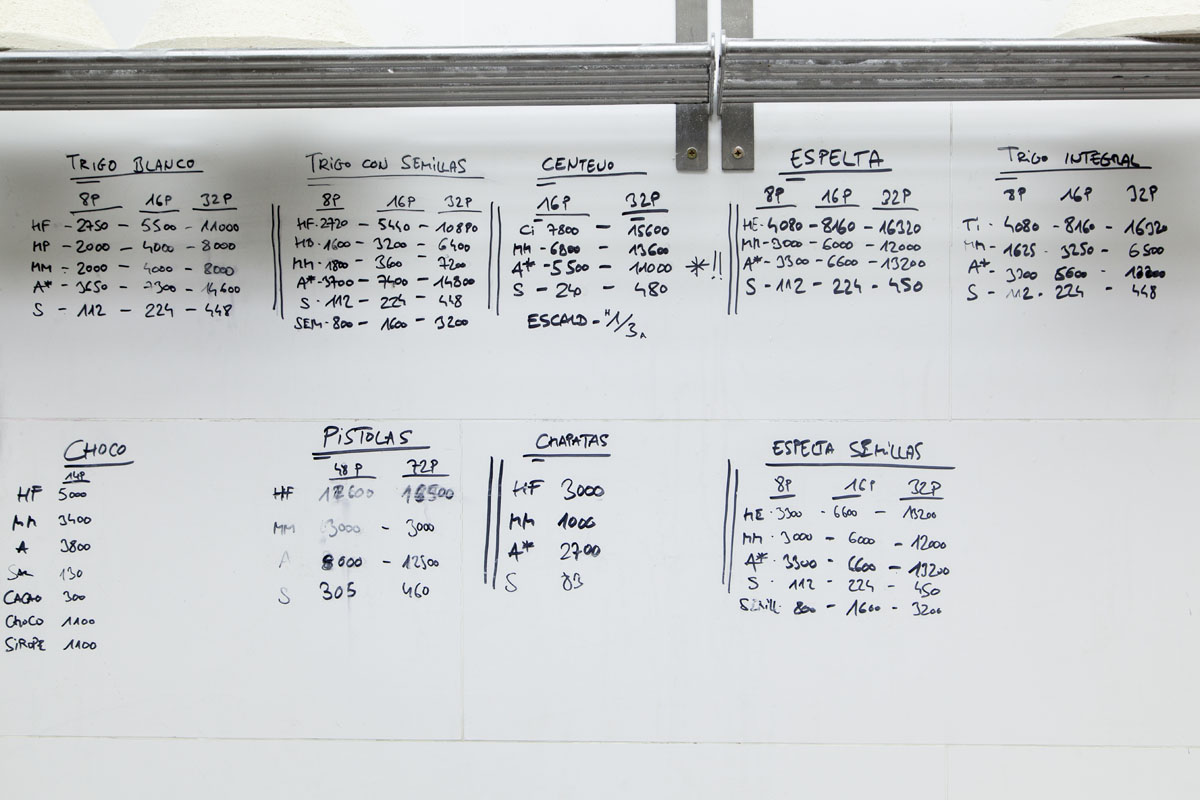 TRIGO BLANCO
8P 16P 32P
HF - 2750 - 5500 - 11000
MP - 2000 - 4000 - 8000
MM - 2000 - 4000 - 8000
A* - 3650 - 7300 - 14600
S - 112 - 224 - 448
TRIGO CON SEMILLAS
8P 16P 32P
HF - 2720 - 5440 - 10880
1600 - 3200 - 6400
MM - 1800 - 3600 - 7200
A* - 3700 - 7400 - 14800
S - 112 - 224 - 448
SEM - 800 - 1600 - 3200
CENTENO
16P 32P
Ci 7800 - 15600
MM - 6800 - 13600
A* - 5500 - 11000 *!!
S - 240 - 480
ESCALD - 1/3
ESPELTA
8P 16P 32P
HE - 4080 - 8160 - 16320
MM - 3000 - 6000 - 12000
A* - 3300 - 6600 - 13200
S - 112 - 224 - 450
TRIGO INTEGRAL
8P 16P 32P
Ti - 4080 - 8160 - 16320
MM - 1625 - 3250 - 6500
A* - 3300
S - 112 - 224 - 448
CHOCO
14P
HF 5000
MM 3400
A 3800
SAL 130
CACAO 300
CHOCO 1100
SIROPE 1100
PISTOLAS
48P 72P
HF
MM 3000 - 3000
A 8000 - 12500
S 305 460
CHAPATAS
HF 3000
MM 1000
A* 2700
S 83
ESPELTA SEMILLAS
8P 16P 32P
HE - 3300 - 6600 - 13200
MM - 3000 - 6000 - 12000
A* - 3300 - 6600 - 13200
S - 112 - 224 - 450
SEMILL - 800 - 1600 - 3200